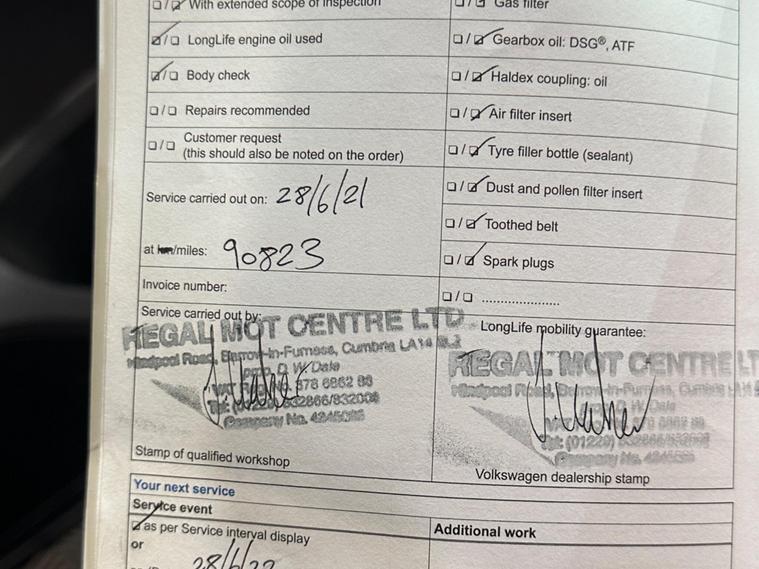 With extended scope of inspection
LongLife engine oil used
Body check
Repairs recommended
Customer request
(this should also be noted on the order)
Service carried out on: 28/6/21
at km/miles: 90823
Invoice number:
Service carried out by:
REGAL MOT CENTRE LTD
Hindpool Road, Barrow-In-Furness, Cumbria LA14
D W Dale
Company No.
Stamp of qualified workshop
Gas filter
Gearbox oil: DSG®, ATF
Haldex coupling: oil
Air filter insert
Tyre filler bottle (sealant)
Dust and pollen filter insert
Toothed belt
Spark plugs
....................
LongLife mobility guarantee:
REGAL MOT CENTRE LT
Hindpool Road, Barrow-In-Furness, Cumbria
D W Dale
Tel: (01229)
Company No.
Volkswagen dealership stamp
Your next service
Service event
as per Service interval display
or
28/6/22
Additional work